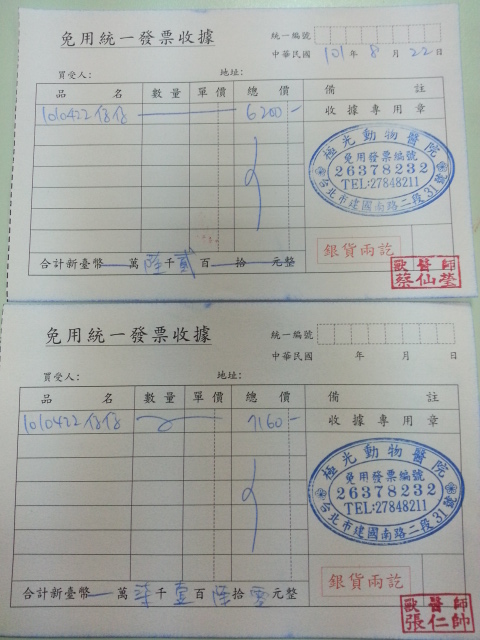 免用統一發票收據
統一編號
中華民國 101 年 8 月 22 日
買受人: 地址:
品名 數量 單價 總價 備註
1010422 6200- 收據專用章
極光動物醫院
免用發票編號
26378232
TEL:27848211
台北市建國南路二段31號
銀貨兩訖
獸醫師
蔡仙瑩
合計新臺幣 萬 陸 千 貳 百 拾 元整
免用統一發票收據
統一編號
中華民國 年 月 日
買受人: 地址:
品名 數量 單價 總價 備註
1010422 7160- 收據專用章
極光動物醫院
免用發票編號
26378232
TEL:27848211
台北市建國南路二段31號
銀貨兩訖
獸醫師
張仁帥
合計新臺幣 萬 柒 千 壹 百 陸 拾 零 元整